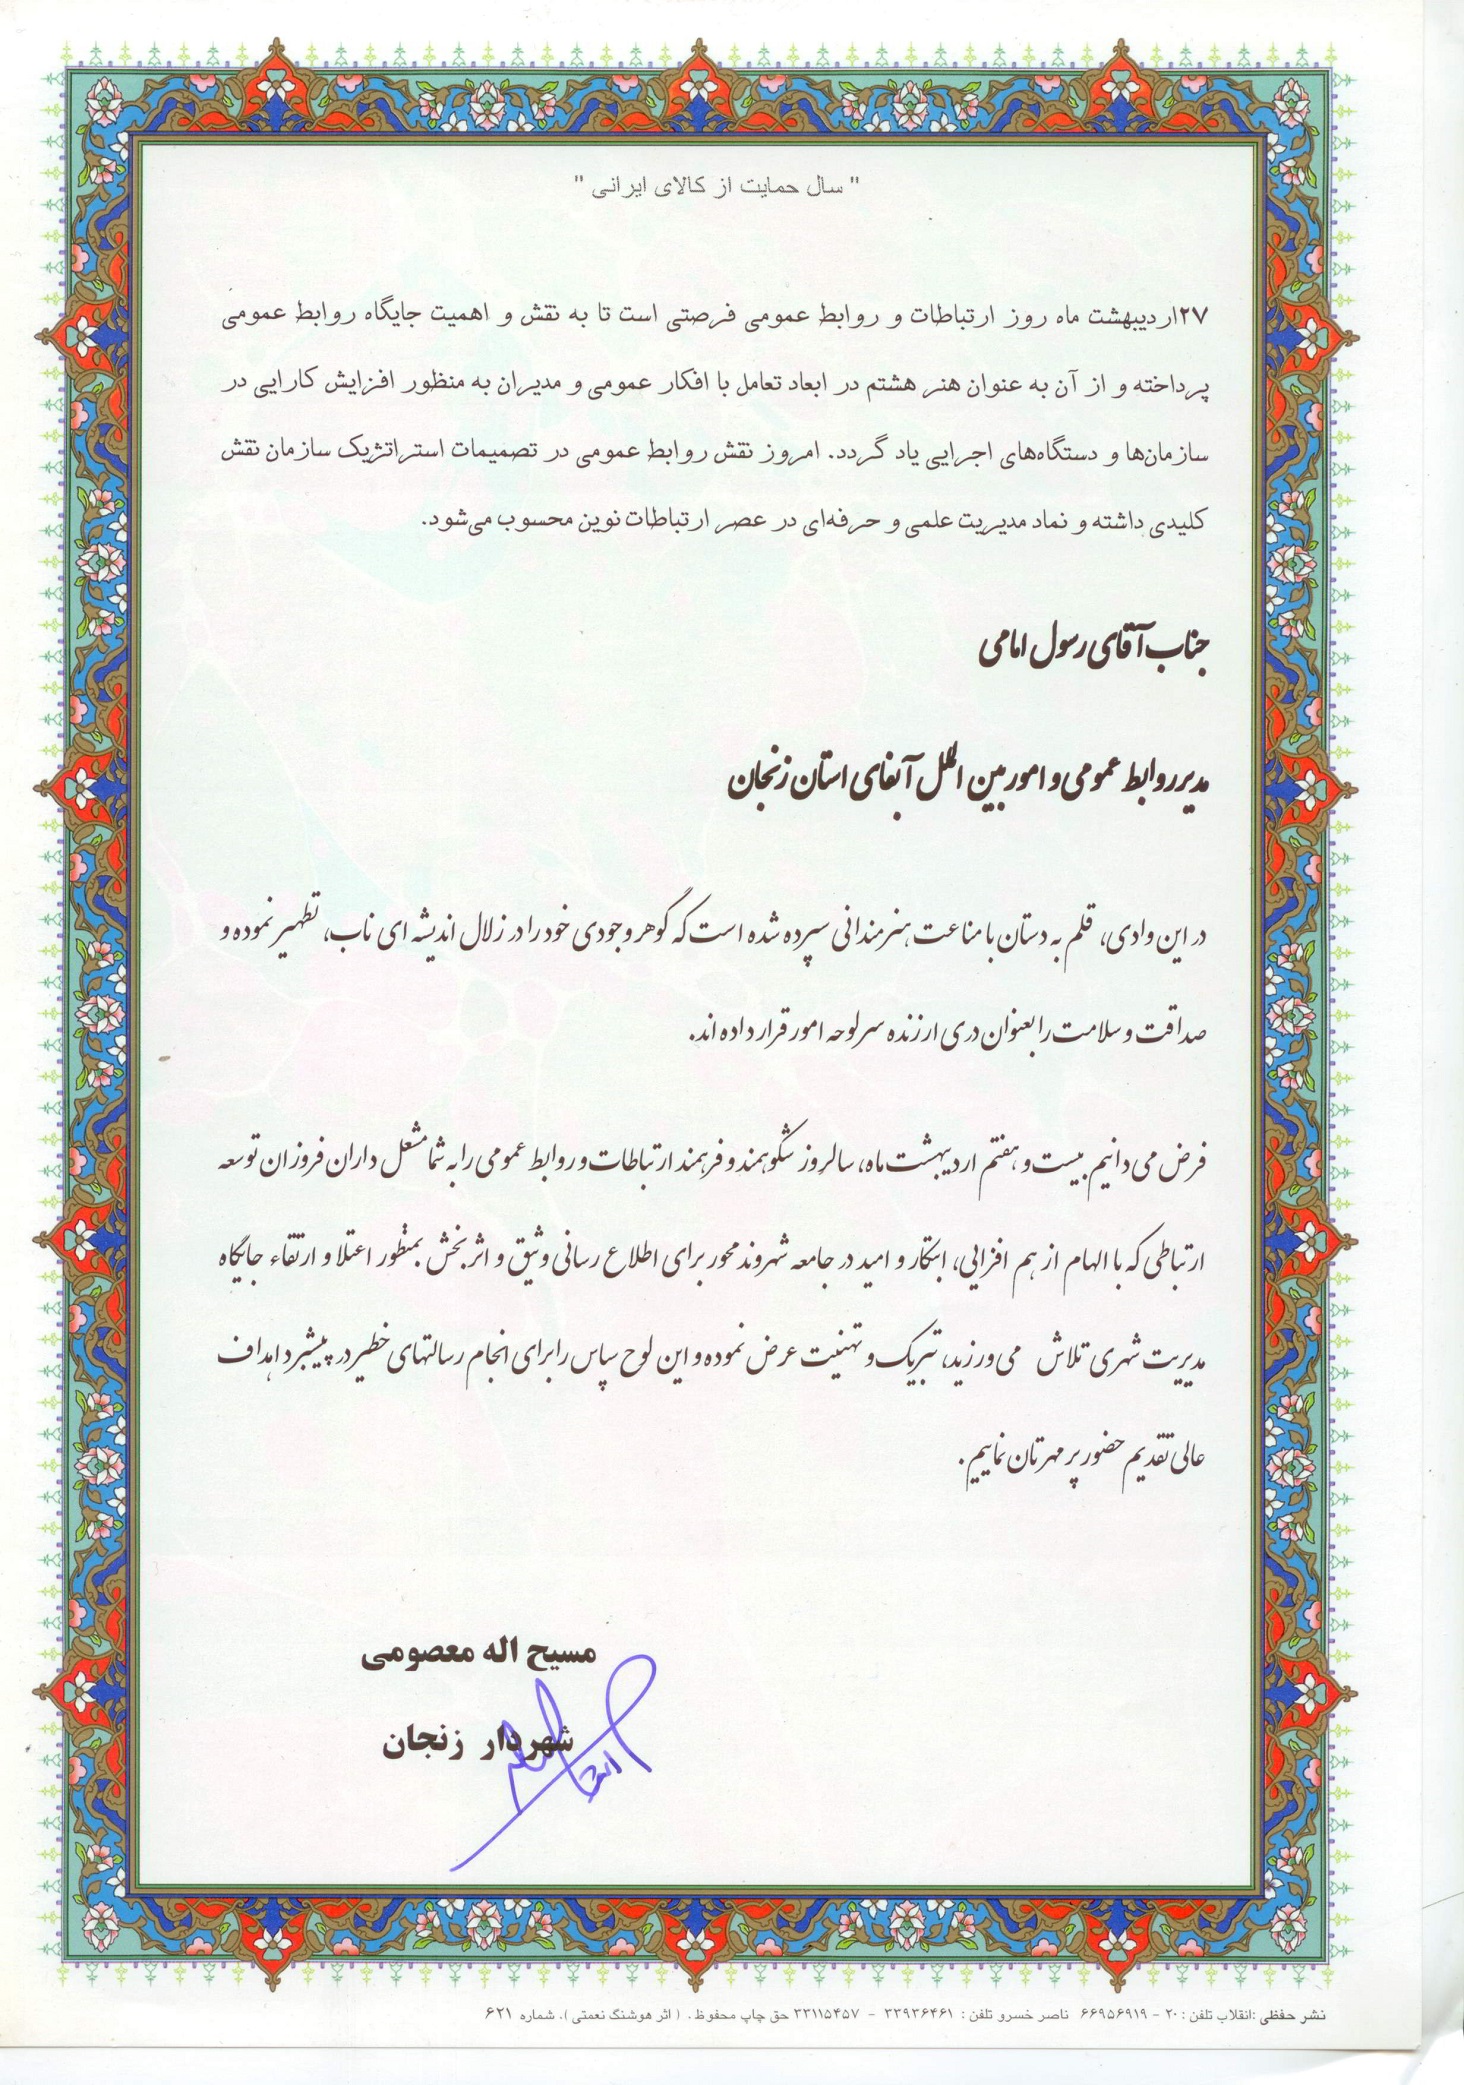 " سال حمایت از کالای ایرانی "
۲۷اردیبهشت ماه روز ارتباطات و روابط عمومی فرصتی است تا به نقش و اهمیت جایگاه روابط عمومی
پرداخته و از آن به عنوان هنر هشتم در ابعاد تعامل با افکار عمومی و مدیران به منظور افزایش کارایی در
سازمان‌ها و دستگاه‌های اجرایی یاد گردد. امروز نقش روابط عمومی در تصمیمات استراتژیک سازمان نقش
کلیدی داشته و نماد مدیریت علمی و حرفه‌ای در عصر ارتباطات نوین محسوب می‌شود.
جناب آقای رسول امامی
مدیر روابط عمومی و امور بین الملل آبفای استان زنجان
در این وادی، قلم به دستان با مناعت هنرمندانی سپرده شده است که گوهر وجودی خود را در زلال اندیشه ای ناب، تطهیر نموده و
صداقت و سلامت را بعنوان دری ارزنده سرلوحه امور قرار داده اند.
فرض می دانیم بیست و هفتم اردیبهشت ماه، سالروز شکوهمند و فرهمند ارتباطات و روابط عمومی را به شما مشعل داران فروزان توسعه
ارتباطی که با الهام از هم افزایی، ابتکار و امید در جامعه شهروند محور برای اطلاع رسانی وثیق و اثربخش بمنظور اعتلا و ارتقاء جایگاه
مدیریت شهری تلاش می ورزید، تبریک و تهنیت عرض نموده و این لوح سپاس را برای انجام رسالتهای خطیر در پیشبرد اهداف
عالی تقدیم حضور پر مهرتان نماییم.
مسیح اله معصومی
شهردار زنجان
نشر حفظی :انقلاب تلفن : ۲۰ - ۶۶۹۵۶۹۱۹ ناصر خسرو تلفن : ۳۳۹۳۶۴۶۱ - ۳۳۱۱۵۴۵۷ حق چاپ محفوظ. ( اثر هوشنگ نعمتی ). شماره ۶۲۱